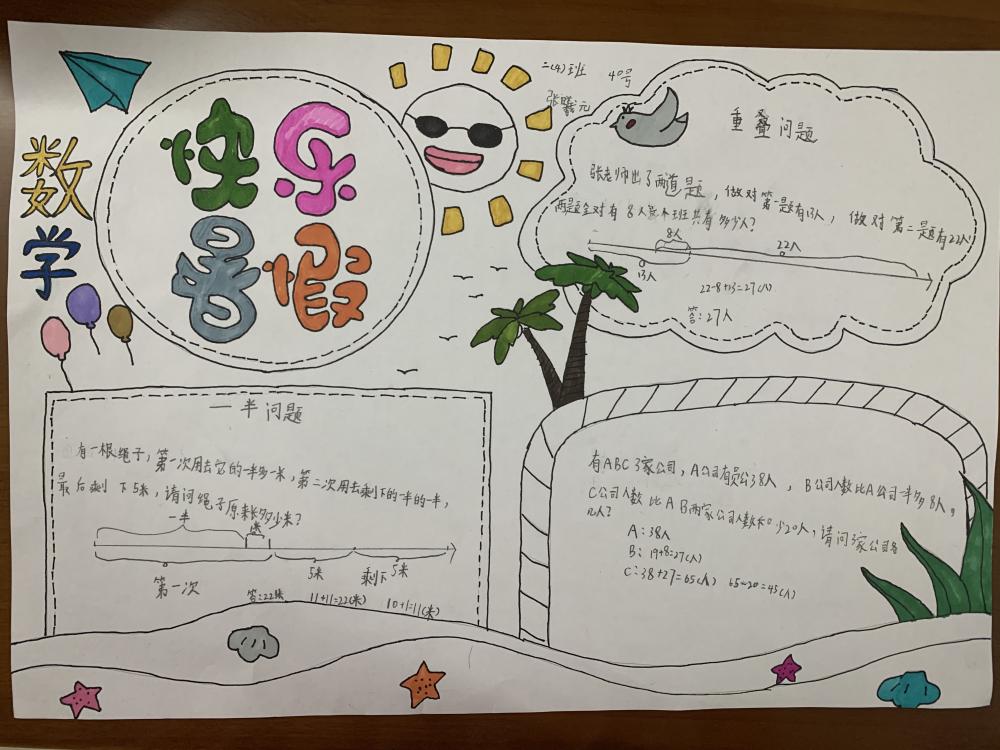 数学
快乐
暑假
二(4)班 40号
张曦元
重叠问题
张老师出了两道题，做对第一题有13人，做对第二题有22人
两题全对有8人 本班共有多少人？
8人
22人
13人
22-8+13=27(人)
答：27人
一半问题
有一根绳子，第一次用去它的一半多一米，第二次用去剩下的一半的一半，
最后剩下5米，请问绳子原来长多少米？
一半
1米
5米
剩下5米
第一次
答：22米 11+11=22(米) 10+1=11(米)
有ABC3家公司，A公司有员公38人，B公司人数比A公司一半多8人。
C公司人数比AB两家公司人数和少20人，请问3家公司各
几人？
A：38人
B：19+8=27(人)
C：38+27=65(人) 65-20=45(人)